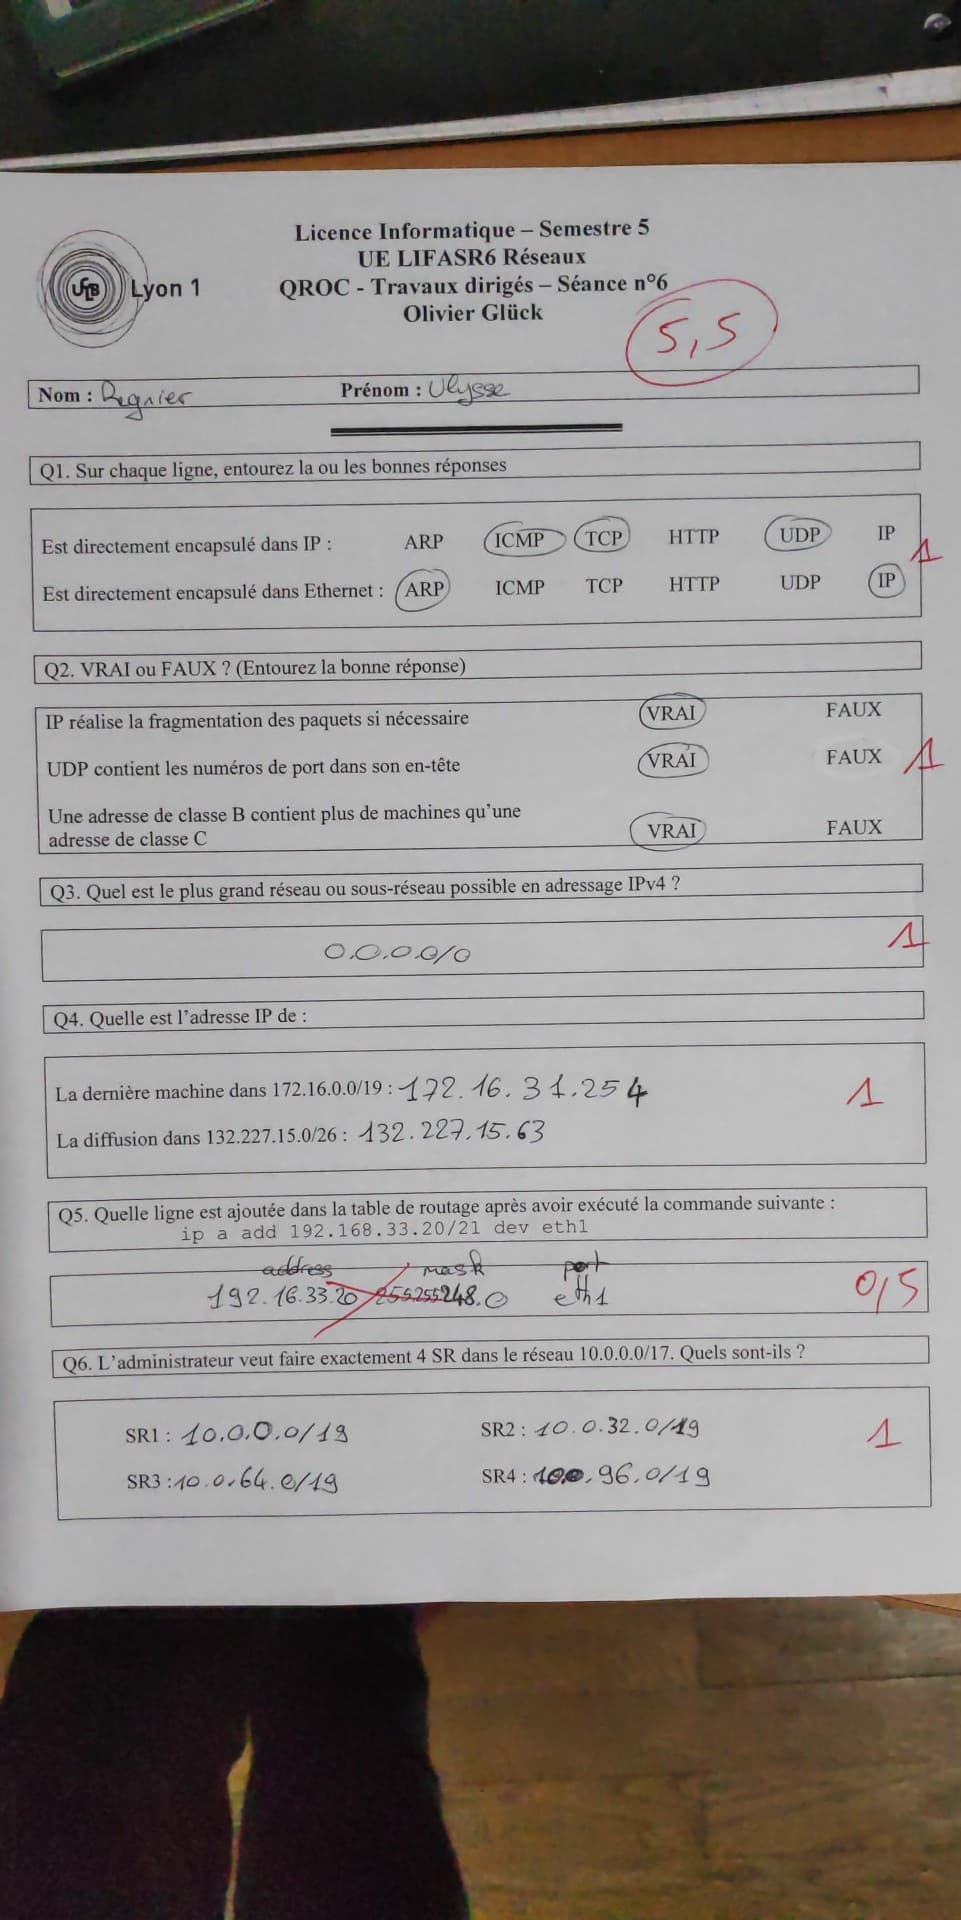 Licence Informatique – Semestre 5
UE LIFASR6 Réseaux
QROC - Travaux dirigés – Séance n°6
Olivier Glück
UCB Lyon 1
5,5
Nom : Regnier Prénom : Ulysse
Q1. Sur chaque ligne, entourez la ou les bonnes réponses
Est directement encapsulé dans IP : ARP ICMP TCP HTTP UDP IP
1
Est directement encapsulé dans Ethernet : ARP ICMP TCP HTTP UDP IP
Q2. VRAI ou FAUX ? (Entourez la bonne réponse)
IP réalise la fragmentation des paquets si nécessaire VRAI FAUX
UDP contient les numéros de port dans son en-tête VRAI FAUX 1
Une adresse de classe B contient plus de machines qu'une
adresse de classe C VRAI FAUX
Q3. Quel est le plus grand réseau ou sous-réseau possible en adressage IPv4 ?
0.0.0.0/0 1
Q4. Quelle est l'adresse IP de :
La dernière machine dans 172.16.0.0/19 : 172.16.31.254 1
La diffusion dans 132.227.15.0/26 : 132.227.15.63
Q5. Quelle ligne est ajoutée dans la table de routage après avoir exécuté la commande suivante :
ip a add 192.168.33.20/21 dev eth1
address mask port
192.16.33.20 255.255.248.0 eth1 0,5
Q6. L'administrateur veut faire exactement 4 SR dans le réseau 10.0.0.0/17. Quels sont-ils ?
SR1 : 10.0.0.0/19 SR2 : 10.0.32.0/19 1
SR3 : 10.0.64.0/19 SR4 : 10.0.96.0/19